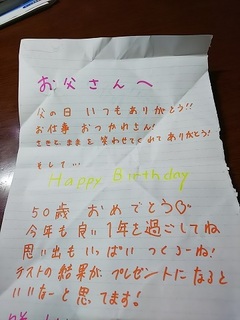 お父さんへ
父の日 いつもありがとう!!
お仕事 おつかれさん!
を笑わせてくれてありがとう!
そして...
Happy Birthday
50歳 おめでとう
今年も良い1年を過ごしてね
思い出もいっぱいつくろーね!
テストの結果が プレゼントになると
いいなーと思てます!